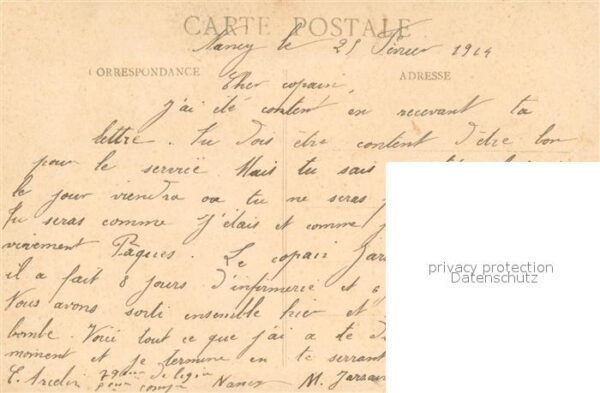 CARTE POSTALE
Nancy le 25 Février 1914
CORRESPONDANCE
ADRESSE
Cher copain,
J'ai été content en recevant ta
lettre. Tu dois être content d'être bon
pour le service Mais tu sais
le jour viendra ou tu ne seras
Tu seras comme J'étais et comme
vivement Pâques. Le copain
il a fait 8 jours d'infirmerie et
Nous avons sorti ensemble hier et
bombe. Voici tout ce que j'ai a te
moment et je termine en te serrant
Nancy M.
privacy protection
Datenschutz